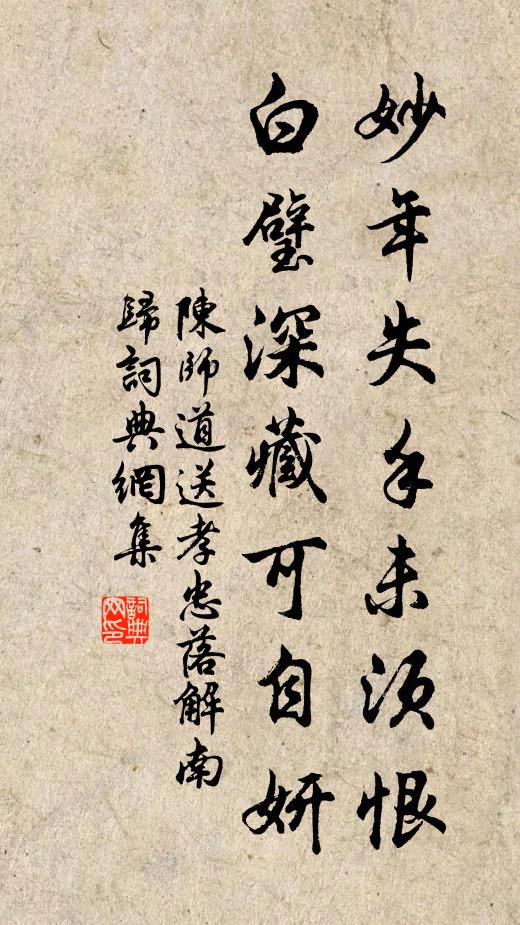 妙年失手未須恨
白璧深藏可自妍
陳師道送孝忠落解南
歸詞典網集
詞典網印